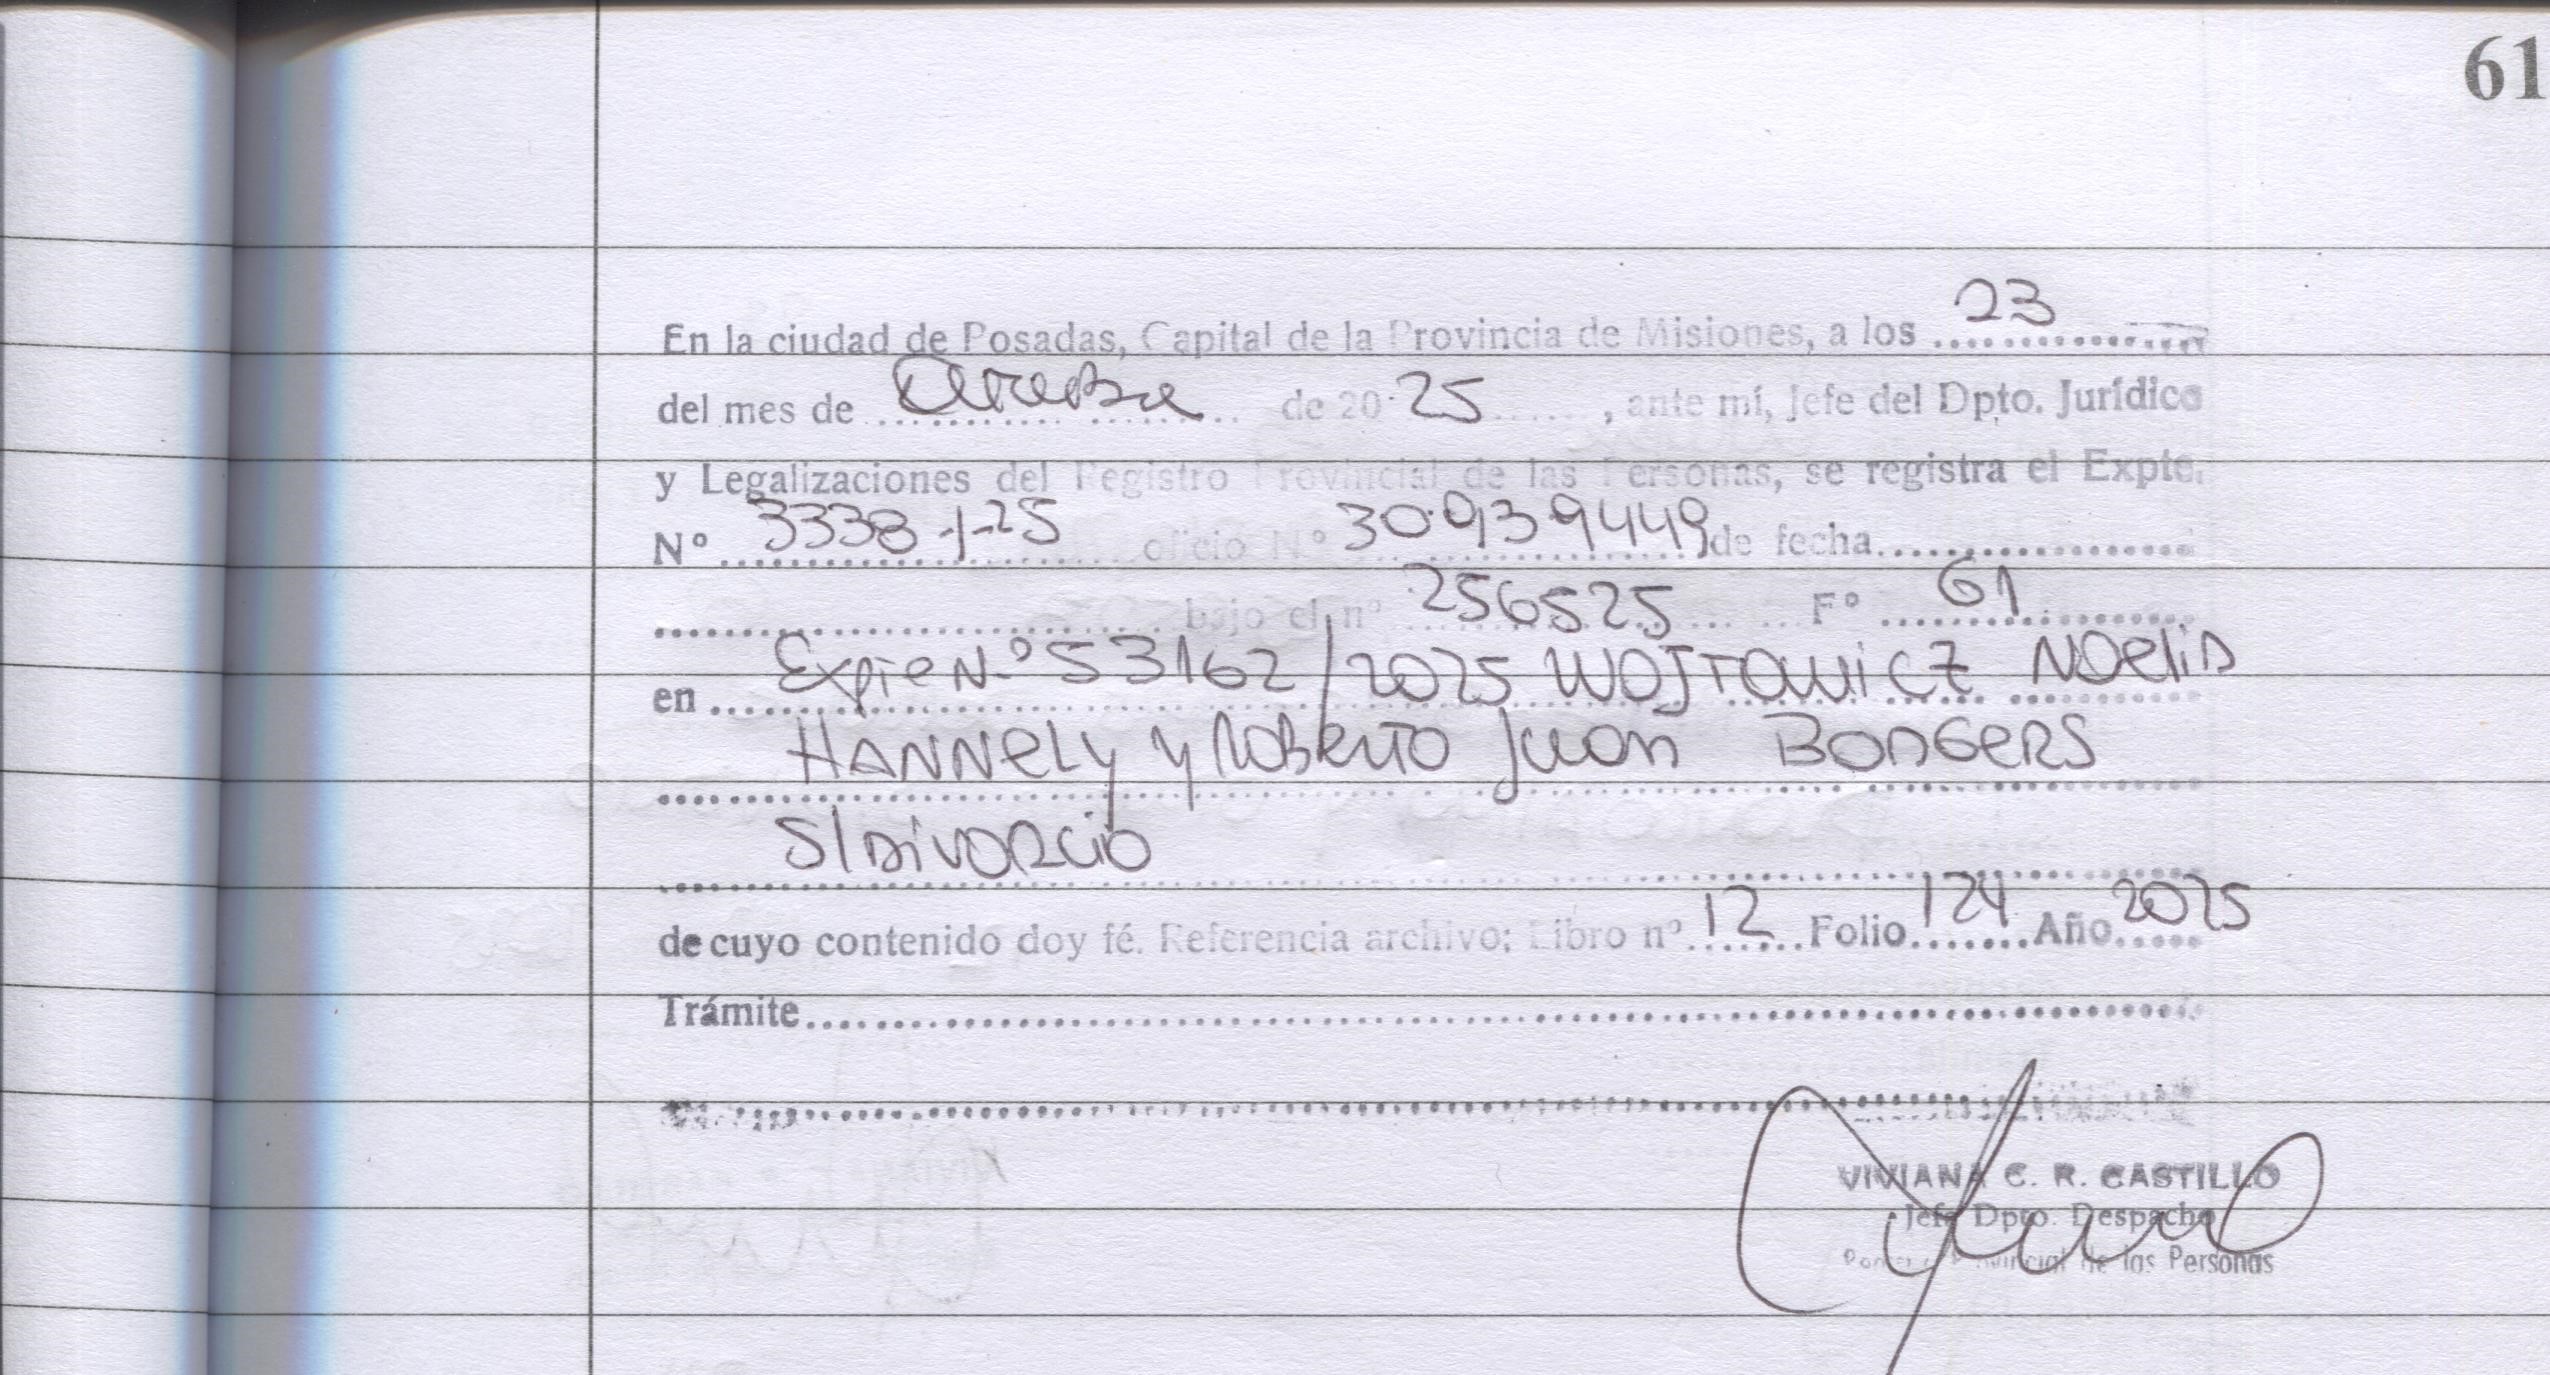 61
En la ciudad de Posadas, Capital de la Provincia de Misiones, a los 23
del mes de Octubre de 2025, ante mí, Jefe del Dpto. Jurídico
y Legalizaciones del Registro Provincial de las Personas, se registra el Expte.
Nº 3338-1-25 oficio Nº 309394449 de fecha
bajo el nº 256525 Fº 61
en Expte Nº 53162/2025 WOJTOWICZ Noelia
HANNELY y Roberto Juan BONGERS
S/DIVORCIO
de cuyo contenido doy fé. Referencia archivo: Libro nº 12 Folio 124 Año 2025
Trámite
VIVIANA C. R. CASTILLO
Jefe Dpto. Despacho
Provincial de las Personas